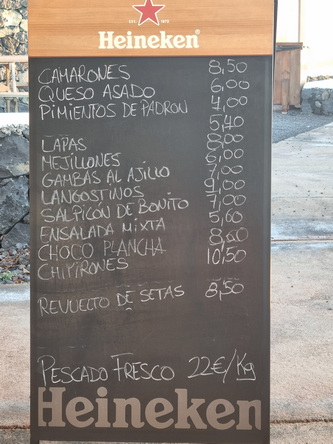 Heineken
CAMARONES 8,50
QUESO ASADO 6,00
PIMIENTOS DE PADRON 4,00
5,40
LAPAS 8,00
MEJILLONES 6,00
GAMBAS AL AJILLO 7,00
LANGOSTINOS 9,00
SALPICON DE BONITO 7,00
ENSALADA MIXTA 5,60
CHOCO PLANCHA 8,60
CHIPIRONES 10,50
REVUELTO DE SETAS 8,50
PESCADO FRESCO 22€/Kg
Heineken